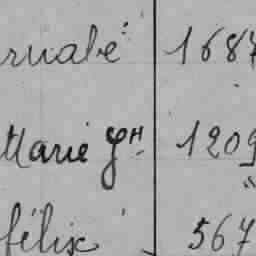 rnabé 1687
Marie Jh 1209
"
félix 567